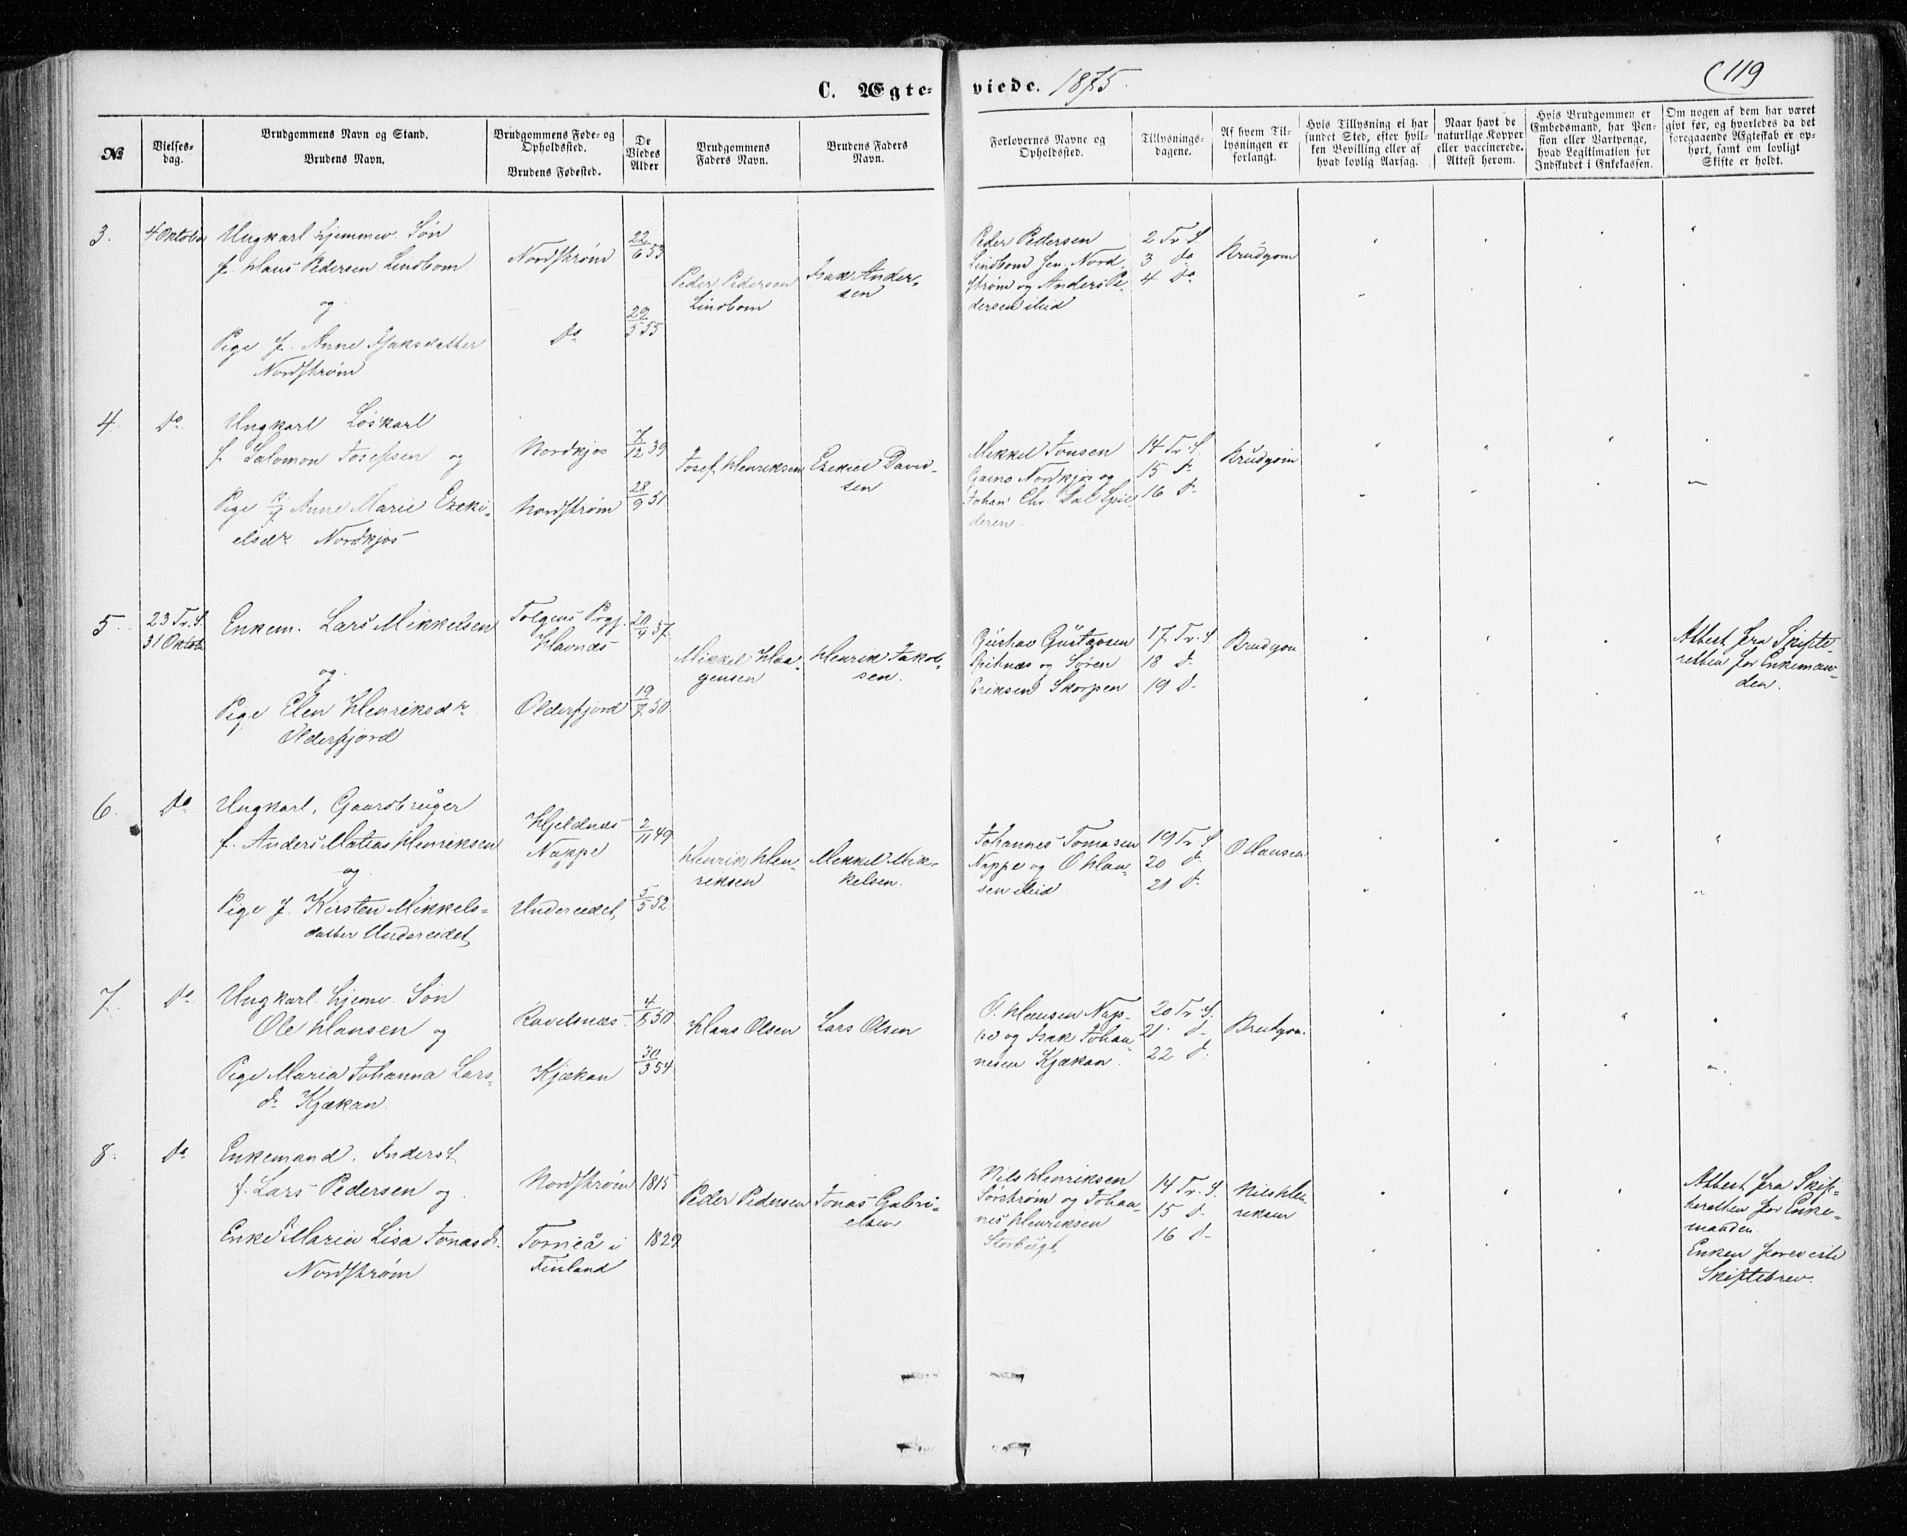 C. Ægte-
viede. 1875.
(119
№
Vielses-
dag.
Brudgommens Navn og Stand.
Brudens Navn.
Brudgommens Føde- og
Opholdssted.
Brudens Fødested.
De
Viedes
Alder
Brudgommens
Faders Navn.
Brudens Faders
Navn.
Forlovernes Navne og
Opholdssted.
Tillysnings-
dagene.
Af hvem Til-
lysningen er
forlangt.
Hvis Tillysning ei har
fundet Sted, efter hvil-
ken Bevilling eller af
hvad lovlig Aarsag.
Naar havt de
naturlige Kopper
eller vaccinerede.
Attest herom.
Hvis Brudgommen er
Embedsmand, har Pen-
sion eller Vartpenge,
hvad Legitimation for
Indskudet i Enkekassen.
Om nogen af dem har været
givt før, og hvorledes da det
foregaaende Ægteskab er op-
hørt, samt om lovligt
Skifte er holdt.
3.
4 Oktober
Ungkarl hjemmev. Søn
f. Hans Pedersen Lindbom
og
Pige f. Anne Isaksdatter
Nordstrøm
Nordstrøm
Do
22/6 53
29/5 55
Peder Pedersen
Lindbom
Isak Ander-
sen
Peder Pedersen
Lindbom Sen. Nord
strøm og Anders Pe-
dersen ibid
2 Tr. S.
3 Do
4 Do
Brudgom
4.
Do
Ungkarl Løskarl
f. Salomon Josefsen og
Pige f Anne Marie Ezeki-
elsdr Nordkjos
Nordkjos
Nordstrøm
7/12 39
28/9 51
Josef Henriksen
Ezekiel David-
sen
Mikkel Jonsen
Gaino Nordkjos og
Johan Chr. Dal Spil-
deren.
14 Tr. S.
15 D-
16 D-
Brudgom
5.
23 Tr. S.
31 Oktob
Enkem. Lars Mikkelsen
og
Pige Elen Henriksdr.
Olderfjord
Tolgens Prgj.
Havnæs
Olderfjord
20/4 37
19/7 50
Mikkel Haa-
gensen
Henrik Jakob-
sen.
Gustav Gustavsen
Spitnæs og Søren
Eriksen Skorpen
17 Tr. S
18 D-
19 D-
Brudgom
Attest fra Skifte-
retten for Enkeman-
den.
6.
Do
Ungkarl, Gaardbruger
f. Anders Matias Henriksen
og
Pige f. Kirsten Mikkels-
datter Undereidet
Hjeldnæs
Nappe
Undereidet
2/11 49
5/5 52
Henrik Hen-
riksen
Mikkel Mik-
kelsen.
Johannes Tomasen
Nappe og O Han-
sen ibid
19 Tr S.
20 D-
21 D-
O Hansen
7.
Do
Ungkarl hjemv. Søn
Ole Hansen og
Pige Maria Johanna Lars-
dr Kjækan.
Ravelsnæs.
Kjækan
4/8 50
30/3 54
Hans Olsen
Lars Olsen
O. Hansen Nap-
pe og Isak Johan-
nesen Kjækan.
20 Tr. S.
21 D-
22 D-
Brudgom.
8.
Do
Enkemand, Inderst.
f. Lars Pedersen og
Enke Maria Lisa Jonasdr.
Nordstrøm
Nordstrøm
Torneå i
Finland
1815
1829
Peder Pedersen
Jonas Gabri-
elsen
Nils Henriksen
Sørstrøm og Johan-
nes Henriksen
Storbugt.
14 Tr. S.
15 D-
16 D-
Nils Hen-
riksen
Attest fra Skif-
teretten for Enke-
manden.
Enken foreviste
Skiftebrev.